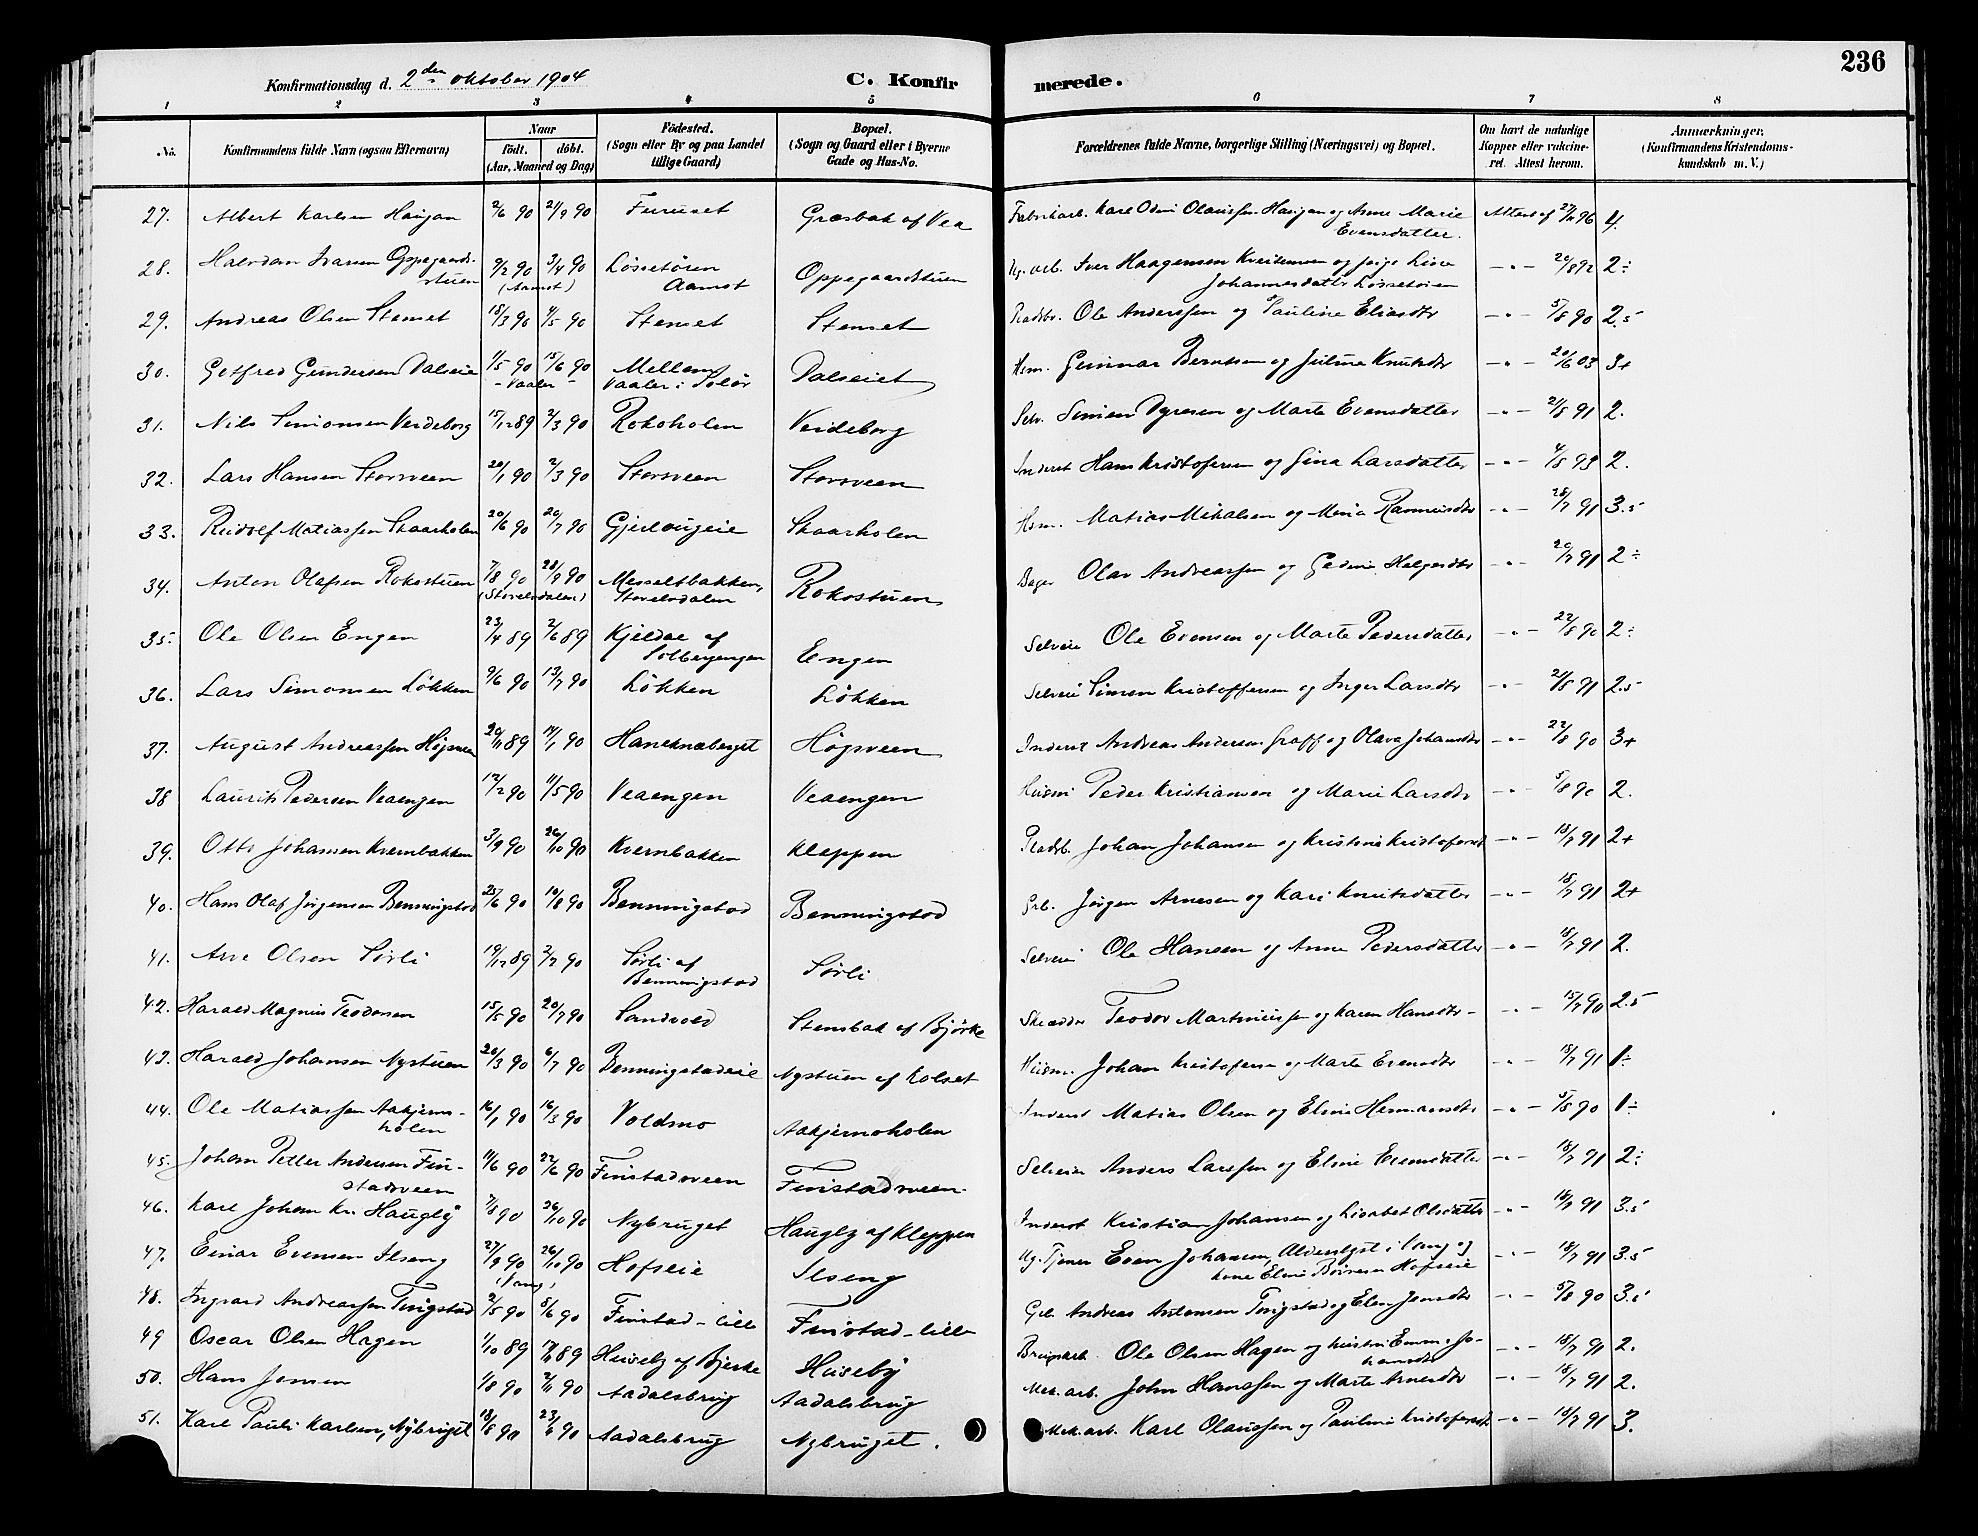 236
Konfirmationsdag d. 2den oktober 1904 C. Konfirmerede.
1 2 3 4 5 6 7 8
No. Konfirmandens fulde Navn (ogsaa Efternavn) Naar födt. döbt. (Aar, Maaned og Dag) Födested. (Sogn eller By og paa Landet tillige Gaard) Bopæl. (Sogn og Gaard eller i Byerne Gade og Hus-No. Forældrenes fulde Navne, borgerlige Stilling (Næringsvei) og Bopæl. Om havt de naturlige Kopper eller vakcineret. Attest herom. Anmærkninger. (Konfirmandens Kristendomskundskab m. V.)
27. Albert Karlsen Haugan 2/6 90 21/9 90 Furuset Græsbak af Vea Fabrikarb. Karl Odin Olaussen Haugan og Anne Marie Evensdatter. Attest af 27/11 96 4.
28. Halvdan Ivarsen Oppegaardstuen 9/2 90 3/4 90 (Aamot) Løssetøren Aamot Oppegaardstuen Ug. arb. Iver Haagensen Kveitemoen og pige Lina Johannesdatter Løssetøien -"- 20/8 92 2÷
29. Andreas Olsen Stenset 18/3 90 4/5 90 Stenset Stenset Pladsbr. Ole Anderssen og Pauline Eliasdtr -"- 5/8 90 2.5
30. Gotfred Gundersen Dalseie 1/5 90 15/6 90 - Vaaler - Mellem Vaaler i Solør Dalseiet Hsm. Gunnar Berntsen og Juline Knutsdtr -"- 20/6 03 3+
31. Nils Simonsen Veideborg 15/12 89 2/3 90 Rokoholen Veideborg Selv. Simen Dyresen og Marte Evensdatter -"- 21/8 91 2.
32. Lars Hansen Storsveen 20/1 90 2/3 90 Storsveen Storsveen Inderst Hans Kristofersen og Gina Larsdatter -"- 4/8 93 2.
33. Rudolf Matiassen Skaarholen 20/6 90 20/7 90 Gjerlougeie Skaarholen Hsm. Matias Mikalsen og Mina Rasmusdtr -"- 28/7 91 3.5
34. Anton Olafsen Rokostuen 7/8 90 28/9 90 (Storelvdalen) Messeltbakken, Storelvdalen Rokostuen Bager Olav Andreassen og Gedine Helgesdtr -"- 20/7 91 2÷
35. Ole Olsen Engen 23/4 89 2/6 89 Kjeldae af Solbergengen Engen Selveier Ole Evensen og Marte Pedersdatter -"- 22/8 90 2÷
36. Lars Simonsen Løkken 9/6 90 13/7 90 Løkken Løkken Selveier Simen Kristoffersen og Inger Larsdtr -"- 21/8 91 2.5
37. August Andreassen Høgsveen 20/11 89 14/1 90 Haneknæberget Høgsveen Inderst Andreas Andersen Graff og Olava Johansdtr -"- 22/8 90 3+
38 Laurits Pedersen Veaengen 12/2 90 11/5 90 Veaengen Veaengen Husm. Peder Kristiansen og Marie Larsdtr -"- 5/8 90 2.
39. Otto Johansen Kvernbakken 3/9 90 26/10 90 Kvernbakken Kleppen Pladsb. Johan Johansen og Kristine Kristofersd -"- 18/7 91 2+
40. Hans Olaf Jørgensen Benningstad 25/6 90 10/8 90 Benningstad Benningstad Grb. Jørgen Arnesen og Kari Knutsdatter -"- 18/7 91 2+
41. Arve Olsen Sørli 19/12 89 2/2 90 Sørli af Benningstad Sørli Selveier Ole Hansen og Anne Pedersdatter -"- 18/7 91 2.
42. Harald Magnus Teodorsen 15/5 90 20/7 90 Sandvold Stensbak af Bjørke Skrædder Teodor Martinussen og Karen Hansdtr -"- 15/7 90 2.5
43. Harald Johansen Nystuen 20/3 90 6/7 90 Benningstadeie Nystuen af Kolset Husm. Johan Kristofersen og Marte Evensdtr -"- 18/7 91 1÷
44. Ole Matiassen Aakjernsholen 16/1 90 16/3 90 Voldmo Aakjernsholen Inderst Matias Olsen og Eline Hermansdtr -"- 5/8 90 1÷
45. Johan Petter Andersen Finstadsveen 11/6 90 22/6 90 Finstadsveen Finstadsveen Selveier Anders Larssen og Eline Evensdatter -"- 18/7 91 2÷
46. Karl Johan Kr. Haugly 7/8 90 26/10 90 Nybruget Haugly af Kleppen Inderst Kristian Johansen og Lisabet Olsdatter -"- 18/7 91 3.5
47. Einar Evensen Ilseng 27/9 90 26/10 90 (Vang) Hofseie Ilseng Ug. Tjener Even Johansen, Aldenlyst i Vang og kone Eline Hofseie -"- 18/7 91 3.5
48. Ingvard Andreassen Tingstad 2/5 90 8/6 90 Finstad-lille Finstad-lille Grb Andreas Antonsen Tingstad og Elen Jensdtr -"- 5/8 90 3.5
49 Oscar Olsen Hagen 1/10 89 17/11 89 Huseby af Bjerke Huseby Brugsarb. Ole Olsen Hagen og hustru Emma Johansdtr -"- 18/7 91 2.
50. Hans Jensen 1/8 90 2/11 90 Aadalsbrug Aadalsbrug Mek. arb. John Hanssen og Marte Arnesdtr -"- 18/7 91 2.
51. Karl Pauli Karlsen, Nybruget 18/8 90 23/11 90 Aadalsbrug Nybruget. Mek. arb. Karl Olaussen og Pauline Kristofersdt -"- 18/7 91 3.